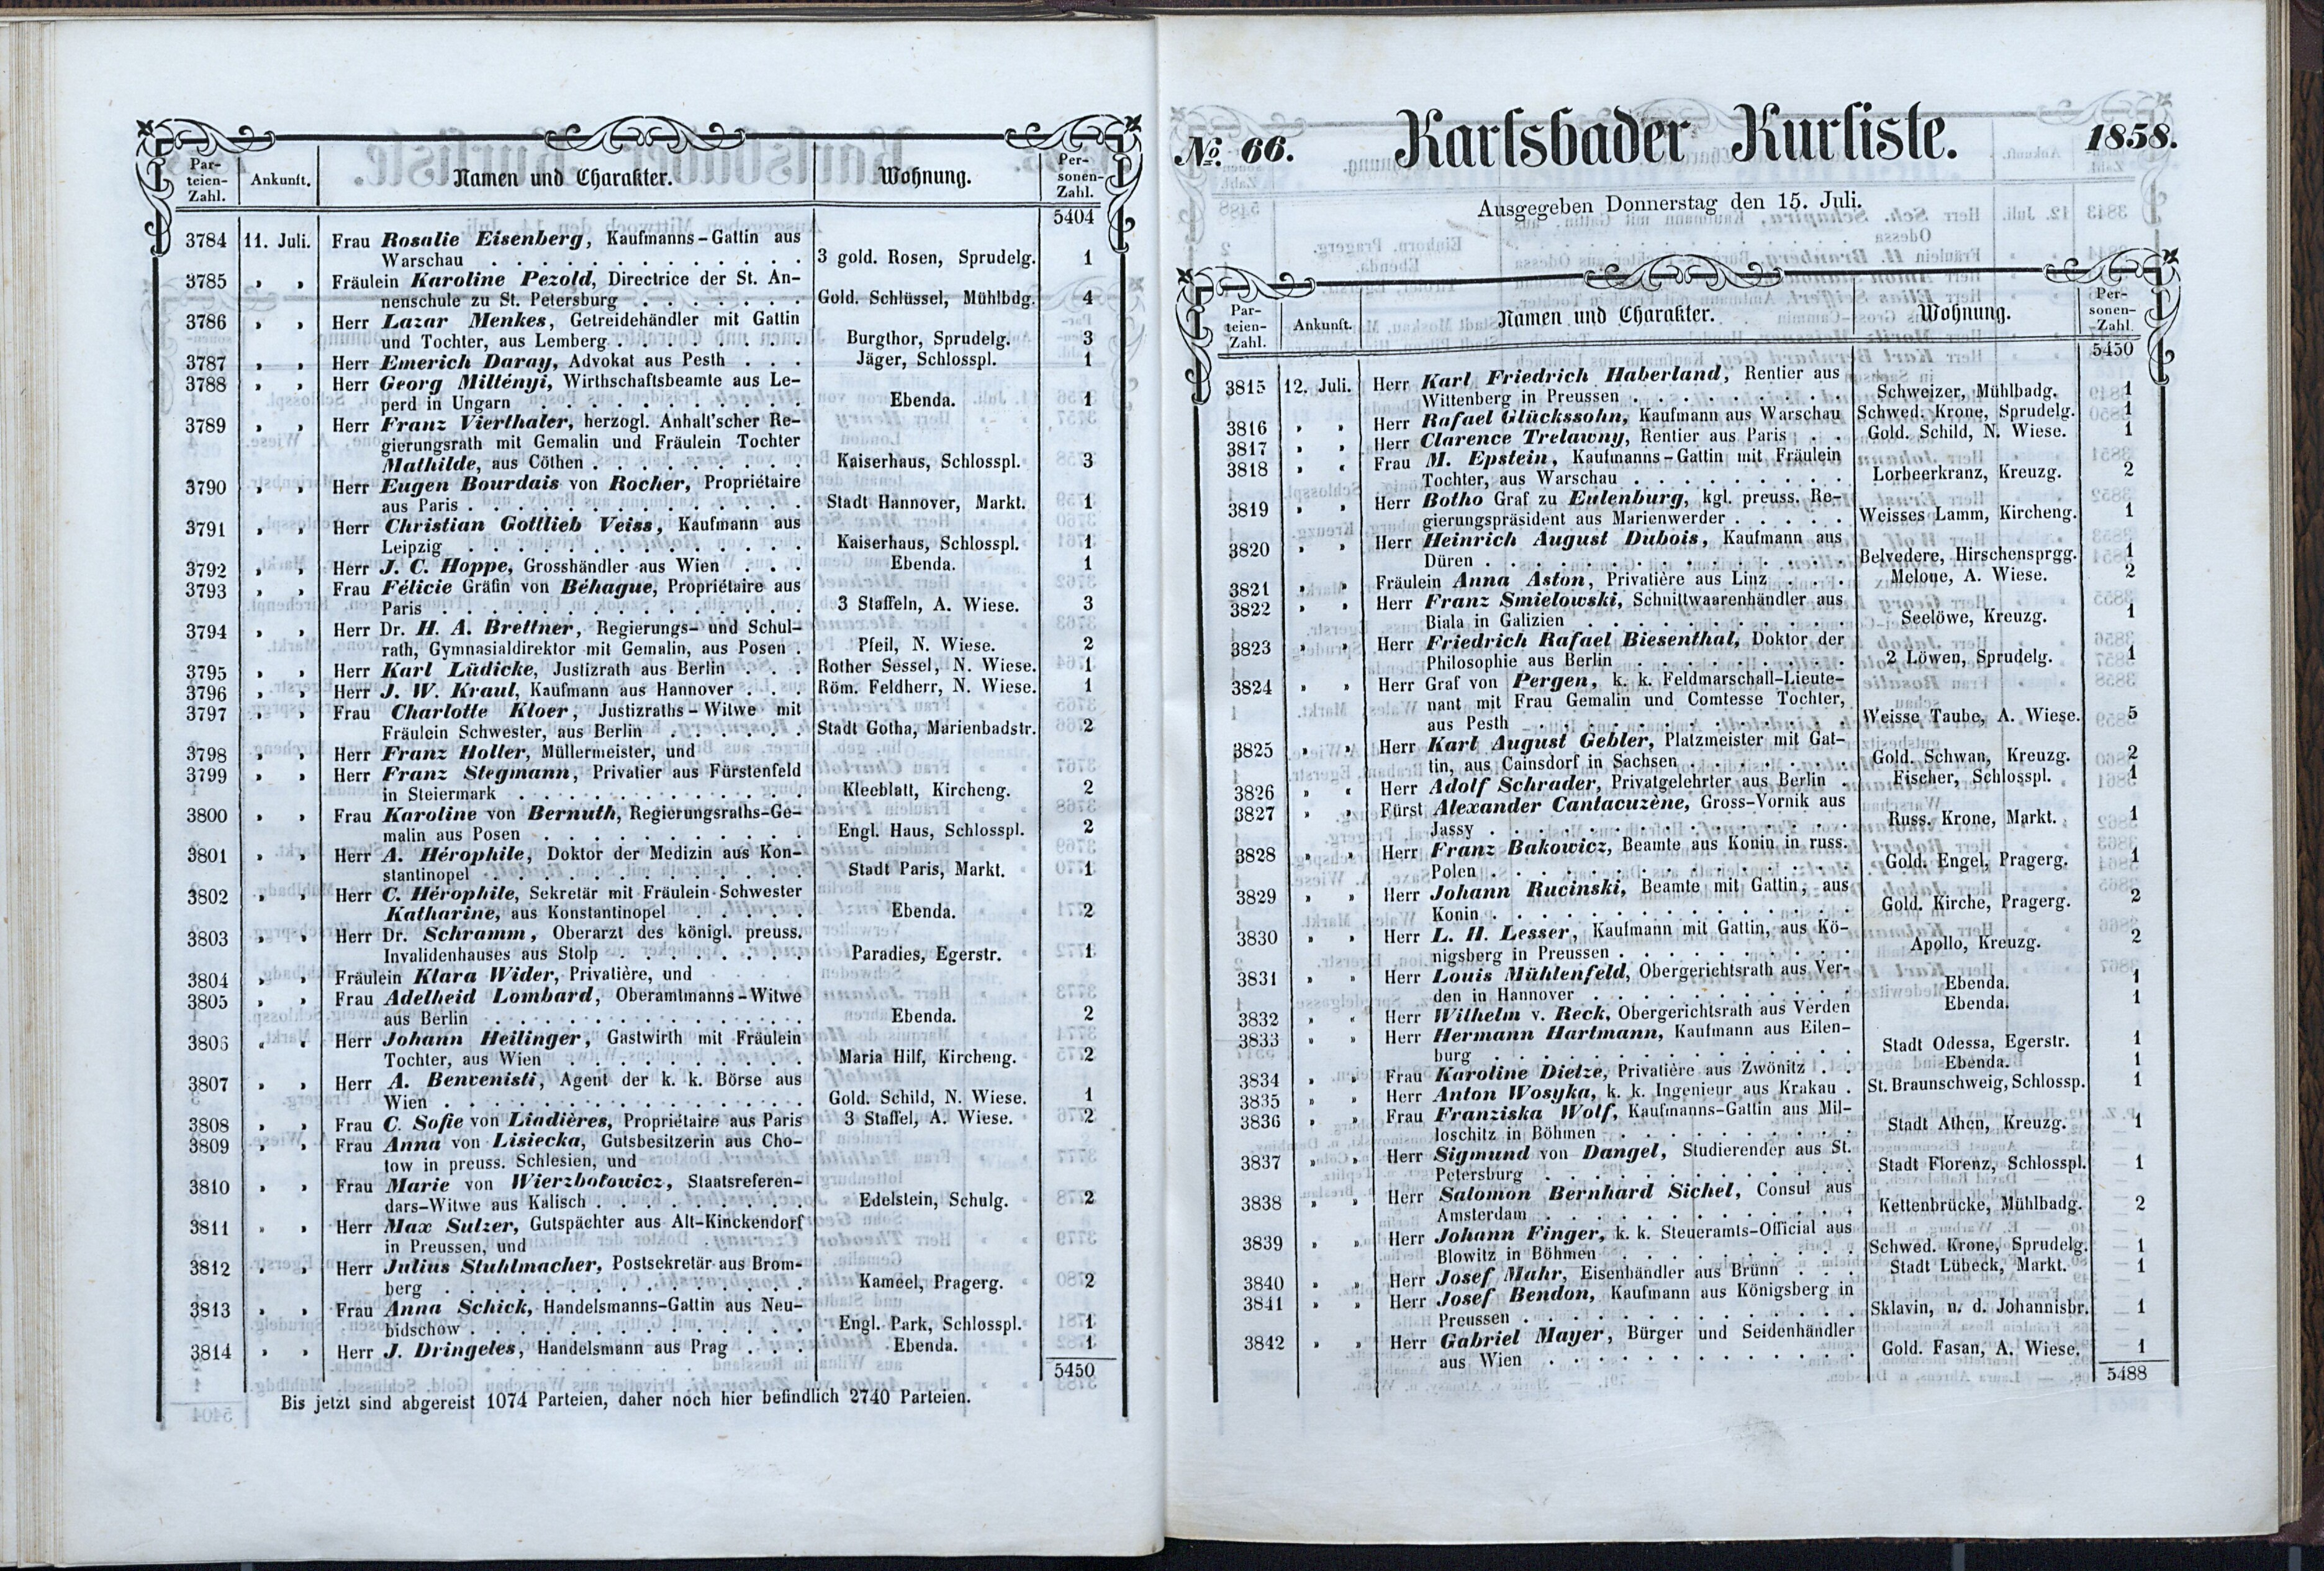 Par-
teien-
Zahl. Ankunft. Namen und Charakter. Wohnung. Per-
sonen-
Zahl.
5404
3784 11. Juli. Frau Rosalie Eisenberg, Kaufmanns-Gattin aus
Warschau . . . . . . 3 gold. Rosen, Sprudelg. 1
3785 » » Fräulein Karoline Pezold, Directrice der St. An-
nenschule zu St. Petersburg . . . . . . Gold. Schlüssel, Mühlbdg. 4
3786 » » Herr Lazar Menkes, Getreidehändler mit Gattin
und Tochter, aus Lemberg . . . . . . Burgthor, Sprudelg. 3
3787 » » Herr Emerich Daray, Advokat aus Pesth . . . Jäger, Schlosspl. 1
3788 » » Herr Georg Miltényi, Wirthschaftsbeamte aus Le-
perd in Ungarn . . . . . . Ebenda. 1
3789 » » Herr Franz Vierthaler, herzogl. Anhalt'scher Re-
gierungsrath mit Gemalin und Fräulein Tochter
Mathilde, aus Cöthen . . . . . . Kaiserhaus, Schlosspl. 3
3790 » » Herr Eugen Bourdais von Rocher, Propriétaire
aus Paris . . . . . . Stadt Hannover, Markt. 1
3791 » » Herr Christian Gottlieb Veiss, Kaufmann aus
Leipzig . . . . . . Kaiserhaus, Schlosspl. 1
3792 » » Herr J. C. Hoppe, Grosshändler aus Wien . . . Ebenda. 1
3793 » » Frau Félicie Gräfin von Béhague, Propriétaire aus
Paris . . . . . . 3 Staffeln, A. Wiese. 3
3794 » » Herr Dr. H. A. Brettner, Regierungs- und Schul-
rath, Gymnasialdirektor mit Gemalin, aus Posen . Pfeil, N. Wiese. 2
3795 » » Herr Karl Lüdicke, Justizrath aus Berlin . . . Rother Sessel, N. Wiese. 1
3796 » » Herr J. W. Kraul, Kaufmann aus Hannover . . . Röm. Feldherr, N. Wiese. 1
3797 » » Frau Charlotte Kloer, Justizraths-Witwe mit
Fräulein Schwester, aus Berlin . . . . . . Stadt Gotha, Marienbadstr. 2
3798 » » Herr Franz Holler, Müllermeister, und
3799 » » Herr Franz Stegmann, Privatier aus Fürstenfeld
in Steiermark . . . . . . Kleeblatt, Kircheng. 2
3800 » » Frau Karoline von Bernuth, Regierungsraths-Ge-
malin aus Posen . . . . . . Engl. Haus, Schlosspl. 2
3801 » » Herr A. Hérophile, Doktor der Medizin aus Kon-
stantinopel . . . . . . Stadt Paris, Markt. 1
3802 » » Herr C. Hérophile, Sekretär mit Fräulein Schwester
Katharine, aus Konstantinopel . . . . . . Ebenda. 2
3803 » » Herr Dr. Schramm, Oberarzt des königl. preuss.
Invalidenhauses aus Stolp . . . . . . Paradies, Egerstr. 1
3804 » » Fräulein Klara Wider, Privatière, und
3805 » » Frau Adelheid Lombard, Oberamtmanns-Witwe
aus Berlin . . . . . . Ebenda. 2
3806 » » Herr Johann Heilinger, Gastwirth mit Fräulein
Tochter, aus Wien . . . . . . Maria Hilf, Kircheng. 2
3807 » » Herr A. Benvenisti, Agent der k. k. Börse aus
Wien . . . . . . Gold. Schild, N. Wiese. 1
3808 » » Frau C. Sofie von Liadières, Propriétaire aus Paris 3 Staffel, A. Wiese. 2
3809 » » Frau Anna von Lisiecka, Gutsbesitzerin aus Cho-
tow in preuss. Schlesien, und
3810 » » Frau Marie von Wierzbołowicz, Staatsreferen-
dars-Witwe aus Kalisch . . . . . . Edelstein, Schulg. 2
3811 » » Herr Max Sulzer, Gutspächter aus Alt-Kinckendorf
in Preussen, und
3812 » » Herr Julius Stuhlmacher, Postsekretär aus Brom-
berg . . . . . . Kameel, Pragerg. 2
3813 » » Frau Anna Schick, Handelsmanns-Gattin aus Neu-
bidschow . . . . . . Engl. Park, Schlosspl. 1
3814 » » Herr J. Dringeles, Handelsmann aus Prag . . . Ebenda. 1
5450
Bis jetzt sind abgereist 1074 Parteien, daher noch hier befindlich 2740 Parteien.
No. 66. Karlsbader Kurliste. 1858.
Ausgegeben Donnerstag den 15. Juli.
Par-
teien-
Zahl. Ankunft. Namen und Charakter. Wohnung. Per-
sonen-
Zahl
5450
3815 12. Juli. Herr Karl Friedrich Haberland, Rentier aus
Wittenberg in Preussen . . . . . . Schweizer, Mühlbadg. 1
3816 » » Herr Rafael Glückssohn, Kaufmann aus Warschau Schwed. Krone, Sprudelg. 1
3817 » » Herr Clarence Trelawny, Rentier aus Paris . . Gold. Schild, N. Wiese. 1
3818 » » Frau M. Epstein, Kaufmanns-Gattin mit Fräulein
Tochter, aus Warschau . . . . . . Lorbeerkranz, Kreuzg. 2
3819 » » Herr Botho Graf zu Eulenburg, kgl. preuss. Re-
gierungspräsident aus Marienwerder . . . . . Weisses Lamm, Kircheng. 1
3820 » » Herr Heinrich August Dubois, Kaufmann aus
Düren . . . . . . Belvedere, Hirschensprgg. 1
3821 » » Fräulein Anna Aston, Privatière aus Linz . . . Melone, A. Wiese. 2
3822 » » Herr Franz Smielowski, Schnittwaarenhändler aus
Biala in Galizien . . . . . . Seelöwe, Kreuzg. 1
3823 » » Herr Friedrich Rafael Biesenthal, Doktor der
Philosophie aus Berlin . . . . . . 2 Löwen, Sprudelg. 1
3824 » » Herr Graf von Pergen, k. k. Feldmarschall-Lieute-
nant mit Frau Gemalin und Comtesse Tochter,
aus Pesth . . . . . . Weisse Taube, A. Wiese. 5
3825 » » Herr Karl August Gebler, Platzmeister mit Gat-
tin, aus Cainsdorf in Sachsen . . . . . . Gold. Schwan, Kreuzg. 2
3826 » » Herr Adolf Schrader, Privatgelehrter aus Berlin . Fischer, Schlosspl. 1
3827 » » Fürst Alexander Cantacuzène, Gross-Vornik aus
Jassy . . . . . . Russ. Krone, Markt. 1
3828 » » Herr Franz Bakowicz, Beamte aus Konin in russ.
Polen . . . . . . Gold. Engel, Pragerg. 1
3829 » » Herr Johann Rucinski, Beamte mit Gattin, aus
Konin . . . . . . Gold. Kirche, Pragerg. 2
3830 » » Herr L. H. Lesser, Kaufmann mit Gattin, aus Kö-
nigsberg in Preussen . . . . . . Apollo, Kreuzg. 2
3831 » » Herr Louis Mühlenfeld, Obergerichtsrath aus Ver-
den in Hannover . . . . . . Ebenda. 1
3832 » » Herr Wilhelm v. Reck, Obergerichtsrath aus Verden Ebenda. 1
3833 » » Herr Hermann Hartmann, Kaufmann aus Eilen-
burg . . . . . . Stadt Odessa, Egerstr. 1
3834 » » Frau Karoline Dietze, Privatière aus Zwönitz . Ebenda. 1
3835 » » Herr Anton Wosyka, k. k. Ingenieur aus Krakau . St. Braunschweig, Schlossp. 1
3836 » » Frau Franziska Wolf, Kaufmanns-Gattin aus Mil-
loschitz in Böhmen . . . . . . Stadt Athen, Kreuzg. 1
3837 » » Herr Sigmund von Dangel, Studierender aus St.
Petersburg . . . . . . Stadt Florenz, Schlosspl. 1
3838 » » Herr Salomon Bernhard Sichel, Consul aus
Amsterdam . . . . . . Kettenbrücke, Mühlbadg. 2
3839 » » Herr Johann Finger, k. k. Steueramts-Official aus
Blowitz in Böhmen . . . . . . Schwed. Krone, Sprudelg. 1
3840 » » Herr Josef Mahr, Eisenhändler aus Brünn . . . Stadt Lübeck, Markt. 1
3841 » » Herr Josef Bendon, Kaufmann aus Königsberg in
Preussen . . . . . . Sklavin, n. d. Johannisbr. 1
3842 » » Herr Gabriel Mayer, Bürger und Seidenhändler
aus Wien . . . . . . Gold. Fasan, A. Wiese. 1
5488